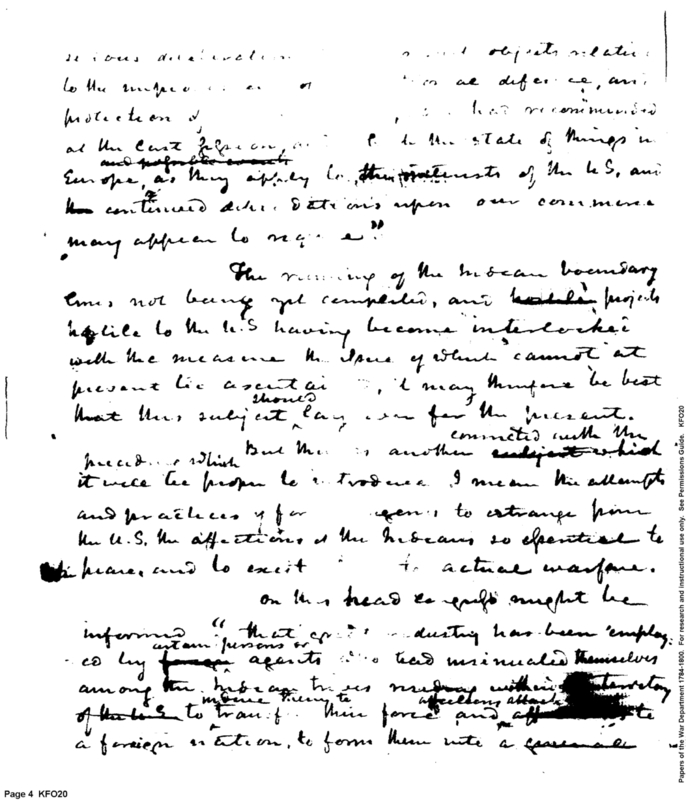 objects relati
to the
protection
had recommended
at the last session, to the state of things in
and possible events
Europe, as they apply to the interests of the U.S, and
the continued depredations upon our commerce
may appear to require"
The running of the Indian boundary
lines not being yet completed, and hostile projects
hostile to the U.S having become interlocked
with the measure the issue of which cannot at
present be ascertai , it may therefore be best
should
that this subject lay over for the present.
connected with the
which But there is another subject which
it will be proper to introduce. I mean the attempts
and practices of for agents to estrange from
the U.S. the affections of the Indians so essential to
peace, and to excit actual warfare.
On this head Congress might be
informed "that great industry has been employ
certain persons or
ed by foreign agents who had insinuated themselves
among the Indian tribes residing within territory
induce them to affections attach
of the U.S to transf their force and
a foreign nation, to form them into a
Page 4 KFO20
Papers of the War Department 1784-1800. For research and instructional use only. See Permissions Guide. KFO20